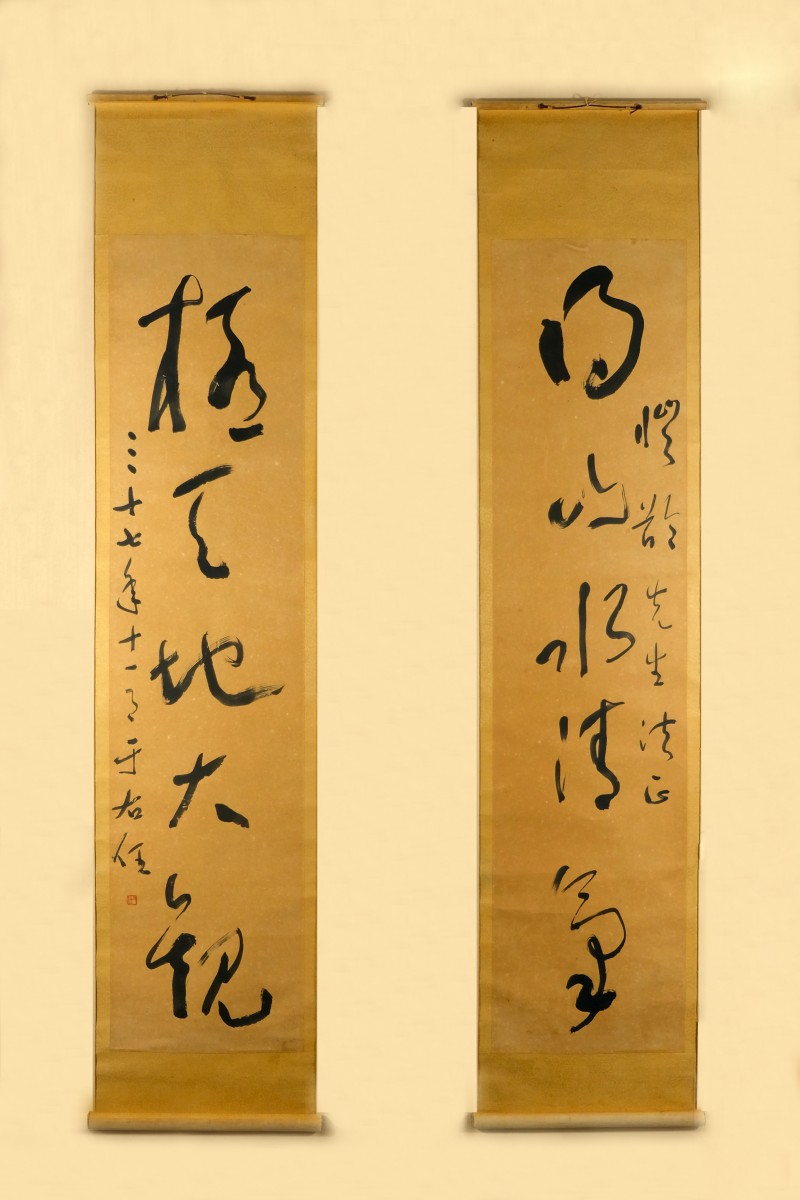 愷齡先生法正
得山水清氣
極天地大觀
三十七年十一月于右任